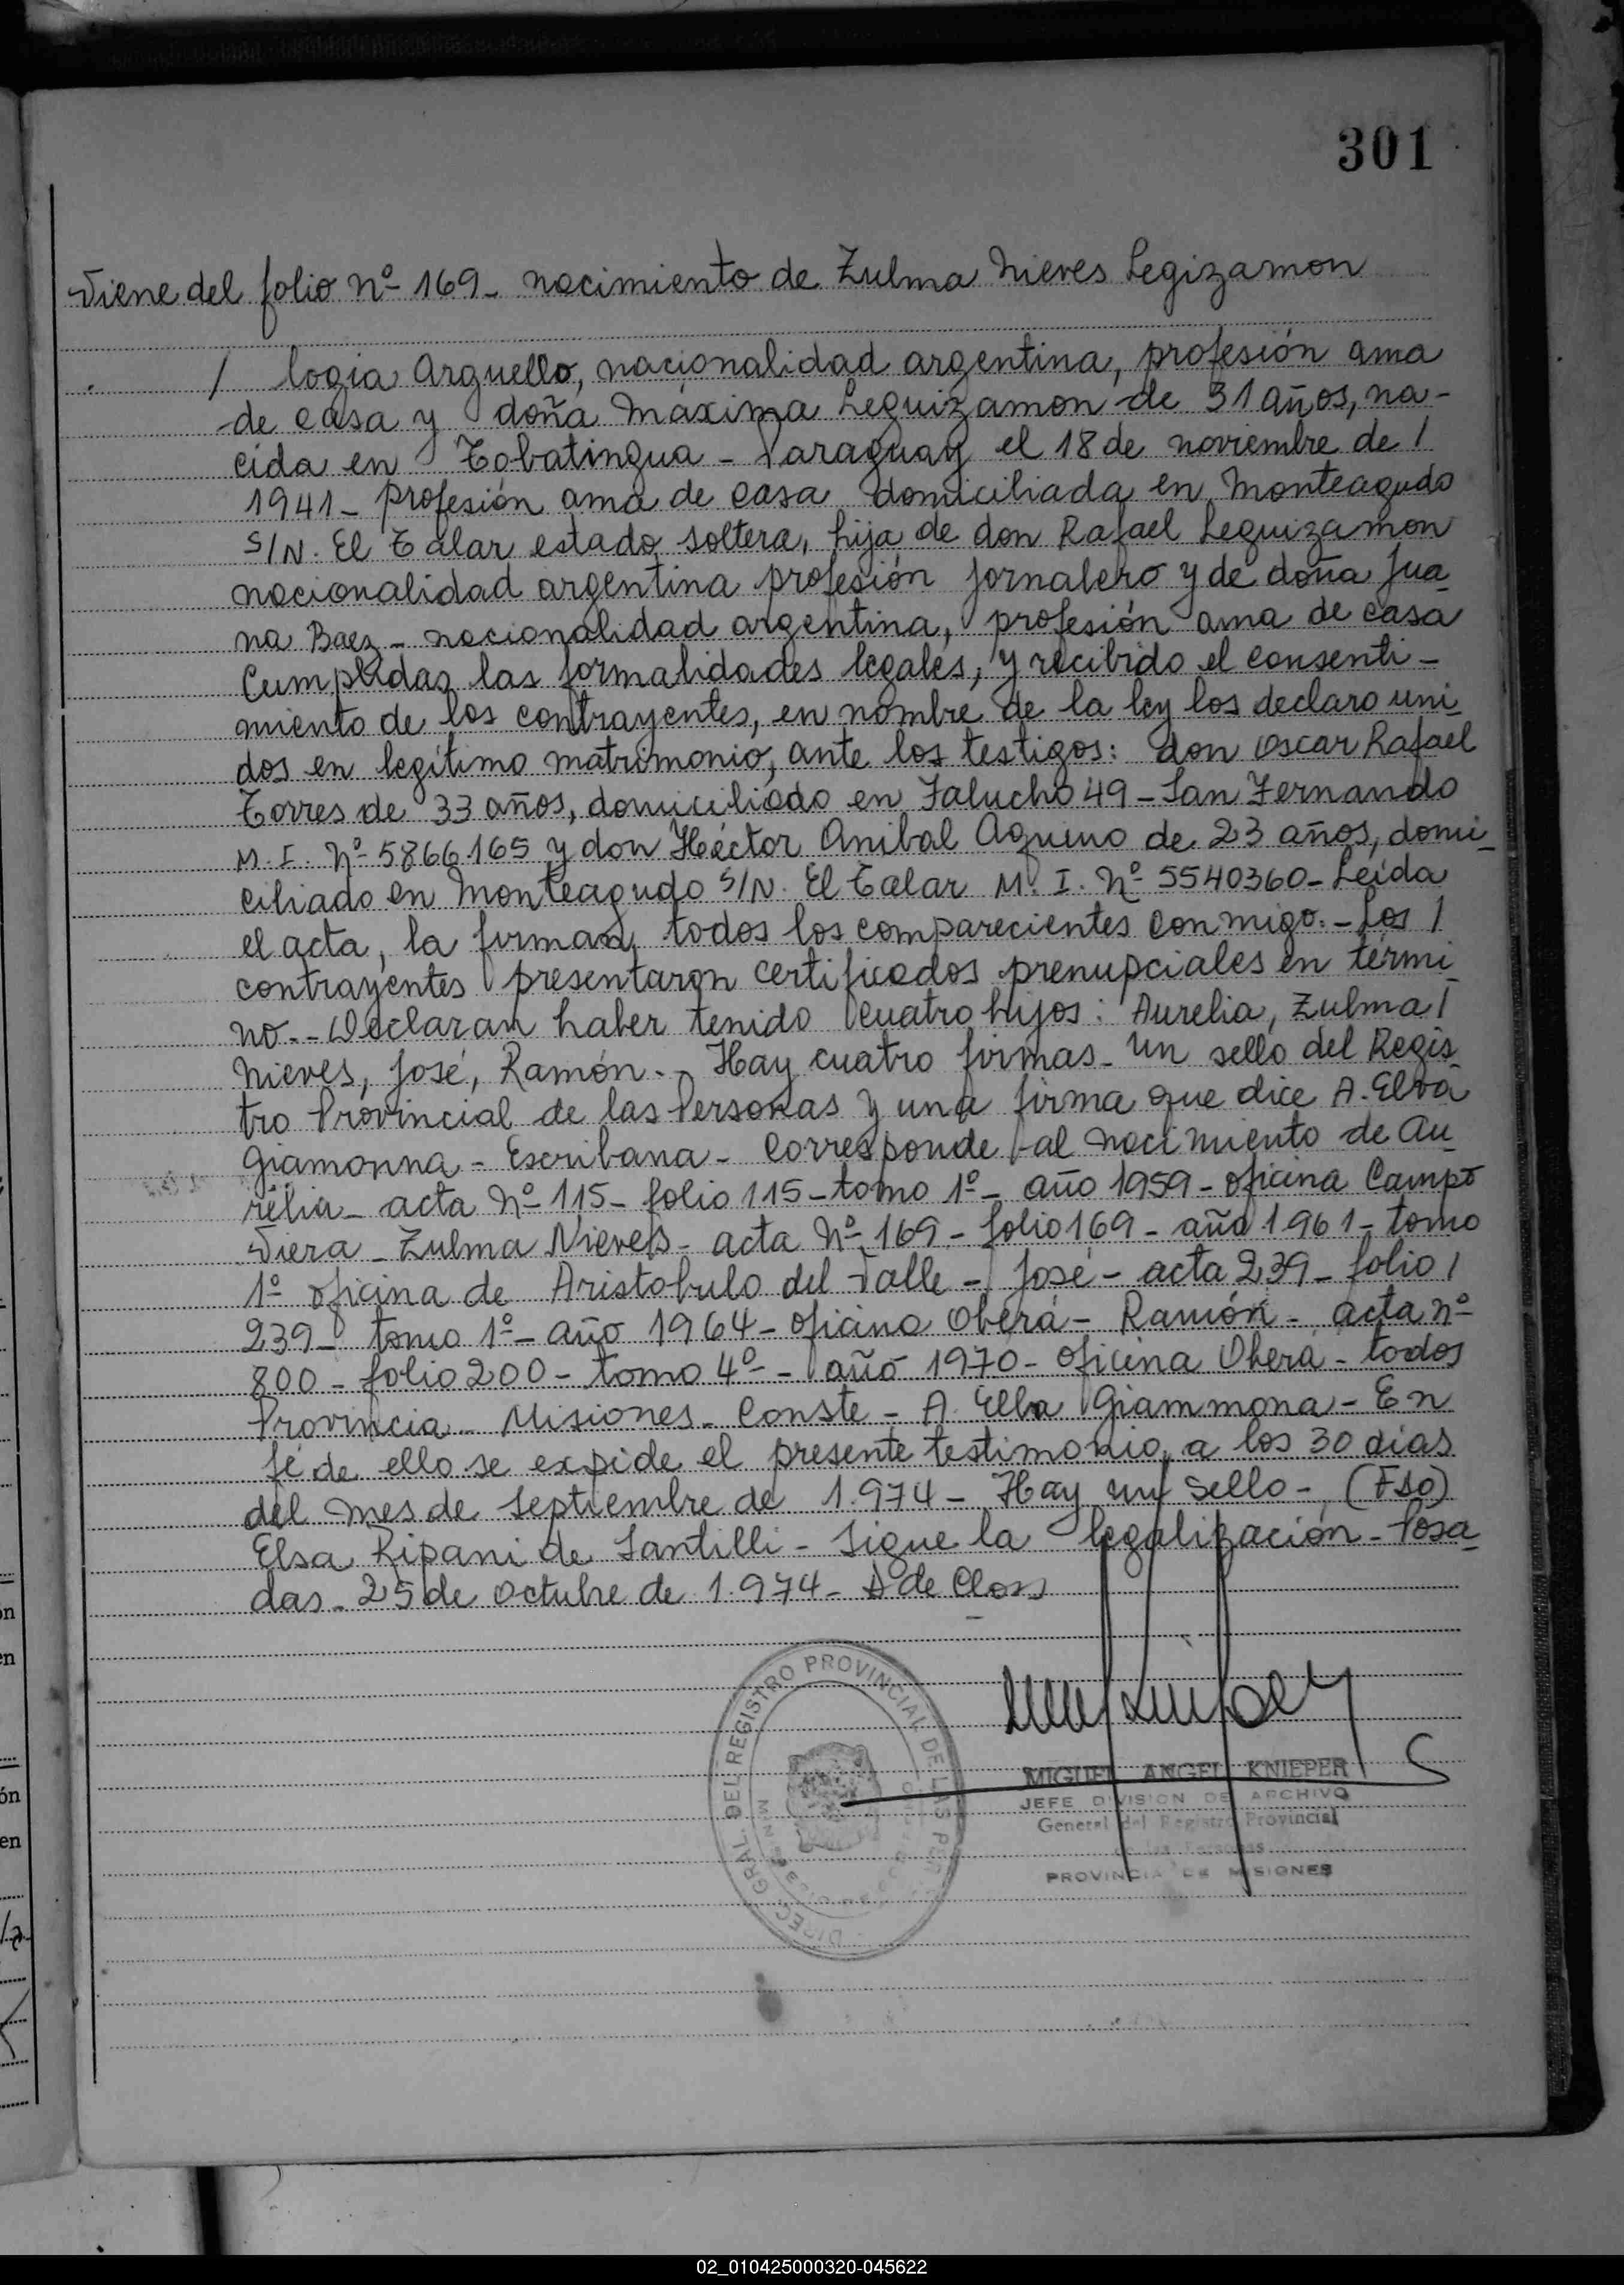 301
Viene del folio nº 169 - nacimiento de Zulma Nieves Legizamon
/ logia Arguello, nacionalidad argentina, profesión ama
de casa y doña Máxima Leguizamon de 31 años, na-
cida en Tobatingua - Paraguay el 18 de noviembre de /
1941 - profesión ama de casa domiciliada en Monteagudo
S/N. El Talar estado soltera, hija de don Rafael Leguizamon
nacionalidad argentina profesión jornalero y de doña Jua-
na Baez - nacionalidad argentina, profesión ama de casa
Cumplidas las formalidades legales, y recibido el consenti-
miento de los contrayentes, en nombre de la ley los declaro uni-
dos en legítimo matrimonio, ante los testigos: don Oscar Rafael
Torres de 33 años, domiciliado en Falucho 49 - San Fernando
M. I. Nº 5866165 y don Héctor Anibal Aquino de 23 años, domi-
ciliado en Monteagudo S/N. El Talar M. I. Nº 5540360 - Leída
el acta, la firman todos los comparecientes conmigo. - Los /
contrayentes presentaron certificados prenupciales en térmi-
no. - Declaran haber tenido cuatro hijos: Aurelia, Zulma /
Nieves, José, Ramón. - Hay cuatro firmas - un sello del Regis-
tro Provincial de las Personas y una firma que dice A. Elba
Giamonna - Escribana - Corresponde al nacimiento de Au-
relia - acta Nº 115 - folio 115 - tomo 1º - año 1959 - oficina Campo
Viera - Zulma Nieves - acta Nº 169 - folio 169 - año 1961 - tomo
1º oficina de Aristobulo del Valle - José - acta 239 - folio /
239 - tomo 1º - año 1964 - oficina Oberá - Ramón - acta nº
800 - folio 200 - tomo 4º - año 1970 - oficina Oberá - todos
Provincia - Misiones - Conste - A. Elba Giammona - En
fé de ello se expide el presente testimonio, a los 30 dias
del mes de septiembre de 1.974 - Hay un sello - (Fdo)
Elsa Ripani de Santilli - Sigue la legalización - Posa-
das - 25 de octubre de 1.974 - A de Closs
DIREC. GRAL. DEL REGISTRO PROVINCIAL DE LAS PER
MIGUEL ANGEL KNIEPER
JEFE DIVISION DE ARCHIVO
General del Registro Provincial
de las Personas
PROVINCIA DE MISIONES
02_010425000320-045622